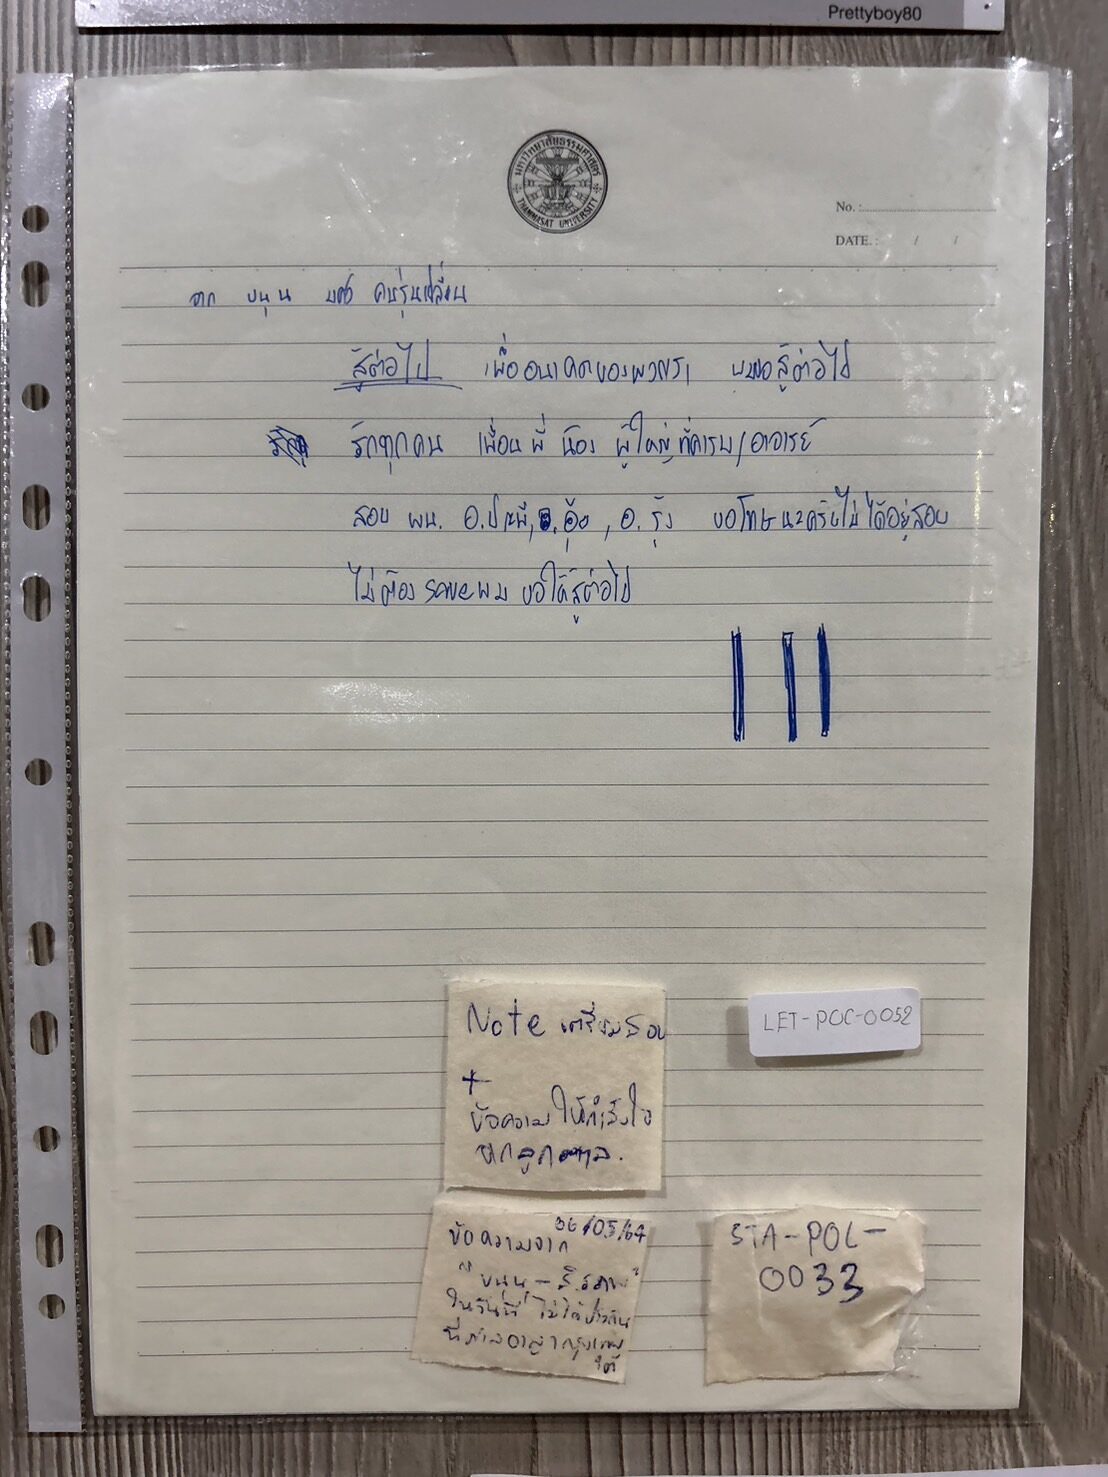 Prettyboy80
มหาวิทยาลัยธรรมศาสตร์
THAMMASAT UNIVERSITY
No. :
DATE. : / /
จาก ขนุน มศว คนรุ่นเปลี่ยน
สู้ต่อไป เพื่ออนาคตของพวกเรา ผมขอสู้ต่อไป
รักทุกคน เพื่อน พี่ น้อง ผู้ใหญ่ที่เคารพ/อาจารย์
สอบ ผน. อ.ปฐมพี, อ.อุ้ย, อ.รุ้ง ขอโทษนะครับไม่ได้อยู่สอบ
ไม่ต้อง save ผม ขอให้สู้ต่อไป
Note เตรียมสอบ
+
ข้อความให้กำลังใจ
จากลูกตาล.
LET-POC-0052
06/05/64
ข้อความจาก
"ขนุน - สิรภพ"
ในวันที่ ไม่ได้ประกัน
ที่ศาลอาญากรุงเทพ
ใต้
STA-POL-
0033